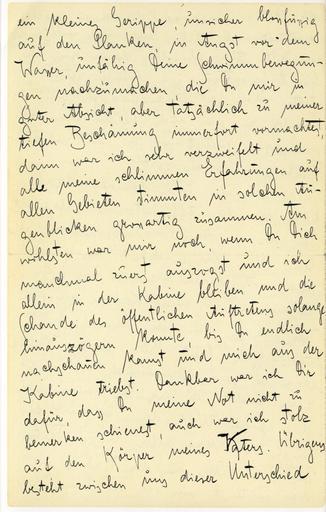 ein kleines Gerippe, unsicher, blossfüssig
auf den Planken, in Angst vor dem
Wasser, unfähig Deine Schwimmbewegun-
gen nachzumachen, die Du mir in
guter Absicht, aber tatsächlich zu meiner
tiefen Beschämung immerfort vormachtest,
dann war ich sehr verzweifelt und
alle meine schlimmen Erfahrungen auf
allen Gebieten stimmten in solchen Au-
genblicken grossartig zusammen. Am
wohlsten war mir noch, wenn Du Dich
manchmal zuerst auszogst und ich
allein in der Kabine bleiben und die
Schande des öffentlichen Auftretens solange
hinauszögern konnte, bis Du endlich
nachschauen kamst und mich aus der
Kabine triebst. Dankbar war ich Dir
dafür, dass Du meine Not nicht zu
bemerken schienest, auch war ich stolz
auf den Körper meines Vaters. Übrigens
besteht zwischen uns dieser Unterschied